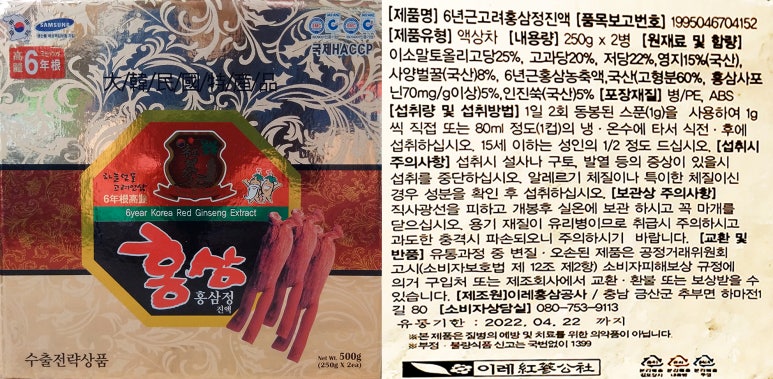 SAMSUNG
국제HACCP
高麗
6年根
大/韓/民/國/特/產/品
하늘선물
고려인삼
6年根高麗
6year Korea Red Ginseng Extract
홍삼
홍삼정
진액
수출전략상품
Net Wt. 500g
(250g X 2ea)
[제품명] 6년근고려홍삼정진액 [품목보고번호] 1995046704152
[제품유형] 액상차 [내용량] 250g x 2병 [원재료 및 함량]
이소말토올리고당25%, 고과당20%, 저당22%,영지15%(국산),
사양벌꿀(국산)8%, 6년근홍삼농축액,국산(고형분60%, 홍삼사포
닌70mg/g이상)5%,인진쑥(국산)5% [포장재질] 병/PE, ABS
[섭취량 및 섭취방법] 1일 2회 동봉된 스푼(1g)을 사용하여 1g
씩 직접 또는 80ml 정도(1컵)의 냉 · 온수에 타서 식전 · 후에
섭취하십시오. 15세 이하는 성인의 1/2 정도 드십시오. [섭취시
주의사항] 섭취시 설사나 구토, 발열 등의 증상이 있을시
섭취를 중단하십시오. 알레르기 체질이나 특이한 체질이신
경우 성분을 확인 후 섭취하십시오. [보관상 주의사항]
직사광선을 피하고 개봉후 실온에 보관 하시고 꼭 마개를
닫으십시오. 용기 재질이 유리병이므로 취급시 주의하시고
과도한 충격시 파손되오니 주의하시기 바랍니다. [교환 및
반품] 유통과정 중 변질 · 오손된 제품은 공정거래위원회
고시(소비자보호법 제 12조 제2항) 소비자피해보상 규정에
의거 구입처 또는 제조회사에서 교환 · 환불 또는 보상받을 수
있습니다. [제조원]이레홍삼공사 / 충남 금산군 추부면 하마전1
길 80 [소비자상담실] 080-753-9113
유통기한 : 2022.04.22 까지
※본 제품은 질병의 예방 및 치료를 위한 의약품이 아닙니다.
※부정 · 불량식품 신고는 국번없이 1399
이레紅蔘公社